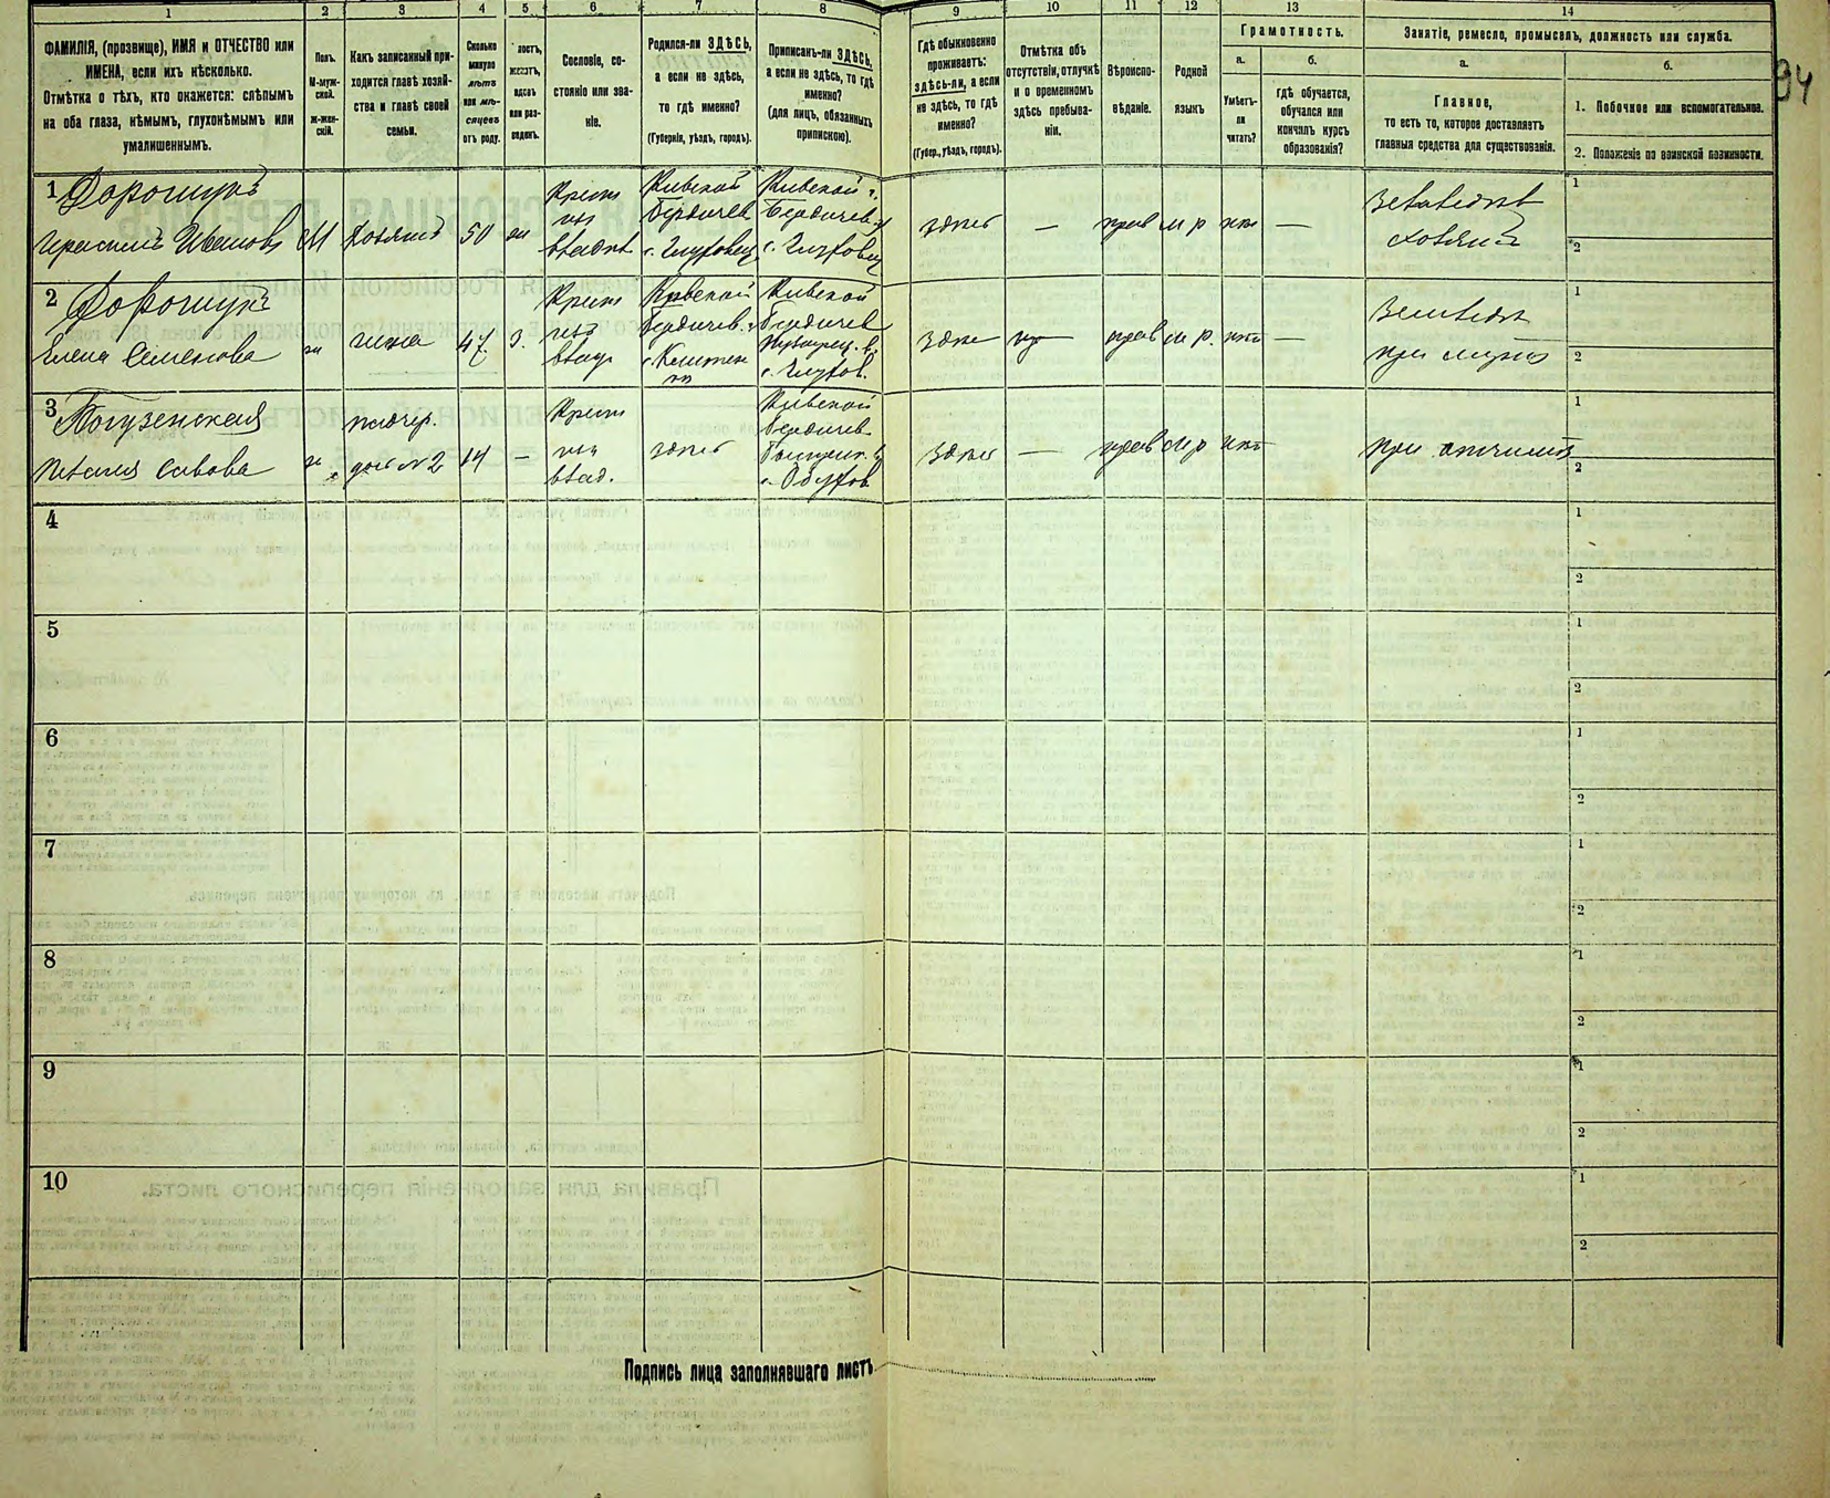 1 2 3 4 5 6 7 8 9 10 11 12 13 14
ФАМИЛІЯ, (прозвище), ИМЯ и ОТЧЕСТВО или
ИМЕНА, если ихъ нѣсколько.
Отмѣтка о тѣхъ, кто окажется: слѣпымъ
на оба глаза, нѣмымъ, глухонѣмымъ или
умалишеннымъ.
Полъ.
М-муж-
ской.
ж-жен-
скій.
Какъ записанный при-
ходится главѣ хозяй-
ства и главѣ своей
семьи.
Сколько
минуло
лѣтъ
или мѣ-
сяцевъ
отъ роду.
лостъ,
женатъ,
вдовъ
или раз-
веденъ.
Сословіе, со-
стояніе или зва-
ніе.
Родился-ли ЗДѢСЬ,
а если не здѣсь,
то гдѣ именно?
(Губернія, уѣздъ, городъ).
Приписанъ-ли ЗДѢСЬ,
а если не здѣсь, то гдѣ
именно?
(для лицъ, обязанныхъ
припискою).
Гдѣ обыкновенно
проживаетъ:
здѣсь-ли, а если
не здѣсь, то гдѣ
именно?
(Губер., уѣздъ, городъ).
Отмѣтка объ
отсутствіи, отлучкѣ
и о временномъ
здѣсь пребыва-
ніи.
Вѣроиспо-
вѣданіе.
Родной
языкъ
Грамотность.
а.
Умѣетъ-
ли
читать?
б.
гдѣ обучается,
обучался или
кончилъ курсъ
образованія?
Занятіе, ремесло, промыселъ, должность или служба.
а.
Главное,
то есть то, которое доставляетъ
главныя средства для существованія.
б.
1. Побочное или вспомогательное.
2. Положеніе по воинской повинности.
94
1 Дорощукъ
Герасимъ Ивановъ М хозяинъ 50 жн
Крест
изъ
владѣл
Кивской
Бердичев
с. Глуховец
Кивской г.
Бердичев. у
с. Глуховец
здѣсь — прав м р нѣт —
Земледѣл
хозяинъ
1
2
2 Дорощукъ
Елена Семенова ж жена 47 з.
Крест
изъ
влад
Кивской
Бердичев.
Кивской
Бердичев
с. Глухов.
здѣс прав м р. нѣт —
Земледѣл
при мужѣ
1
2
3 Погузенская
Наталия Савова ж
падчер.
№ 2 14 —
Крест
изъ
влад.
здѣсь
Кивской
Бердичев
здѣсь — прав м р нѣт
при отчимѣ
1
2
4 1
2
5 1
2
6 1
2
7 1
2
8 1
2
9 1
2
10 1
2
Подпись лица заполнявшаго листъ